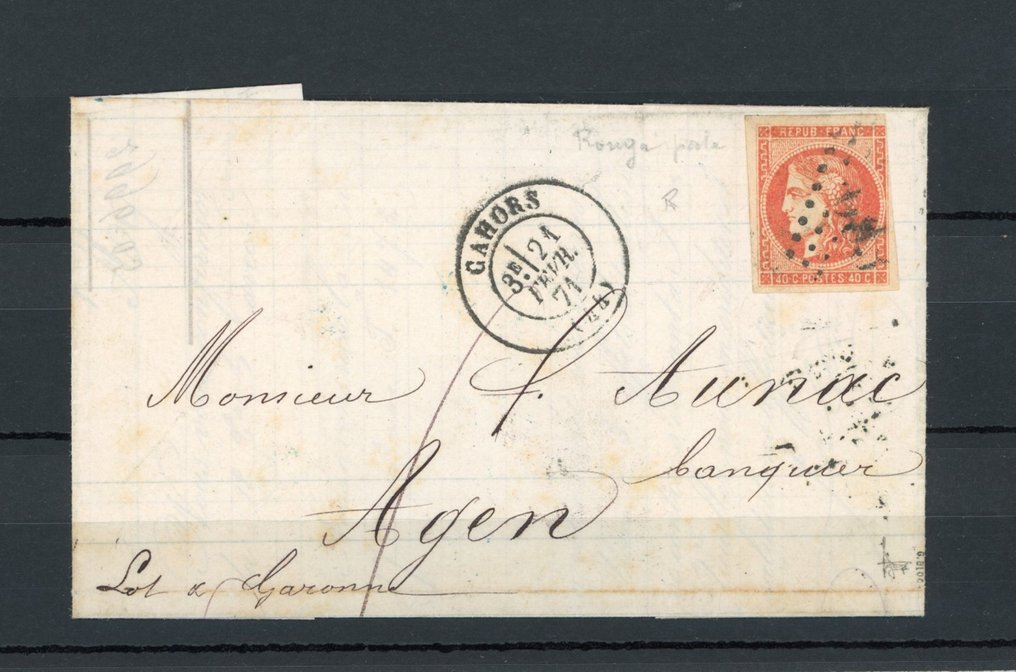 Rouge pale
R
REPUB·FRANC
40·C·POSTES·40·C
CAHORS
3E 21
FEVR.
71
(44)
Monsieur F. Aunac
banquier
Agen
Lot & Garonne
20189